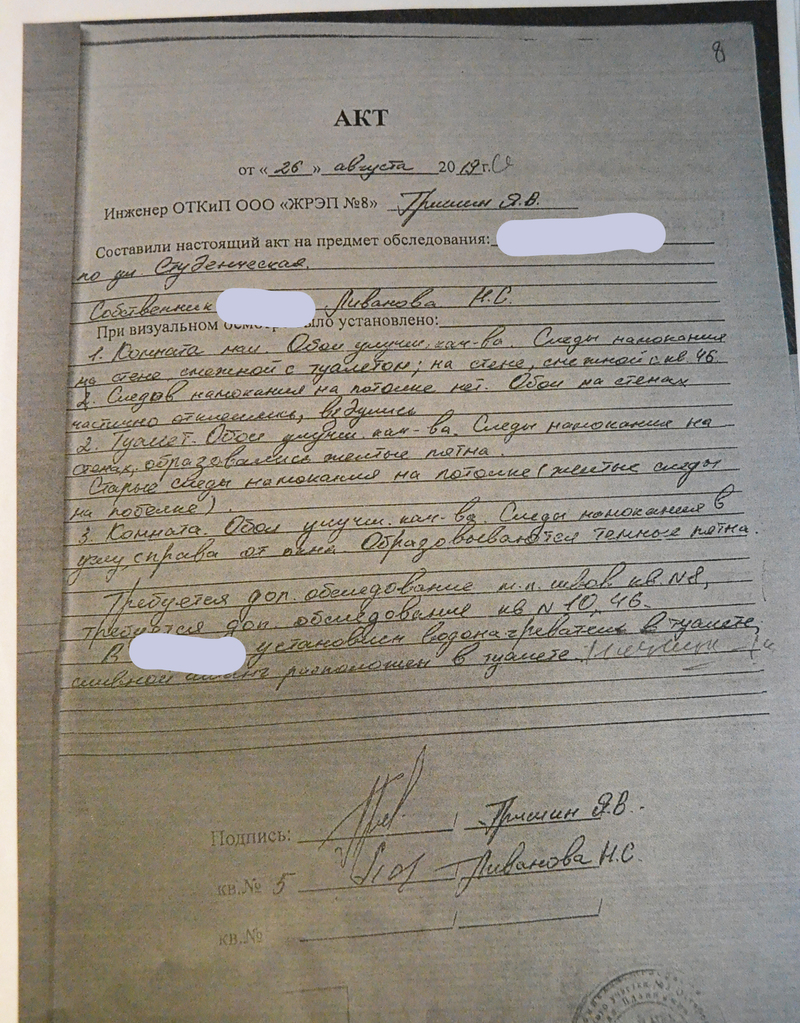 8
АКТ
от « 26 » августа 2019 г.
Инженер ОТКиП ООО «ЖРЭП №8» Пришин Я.В.
Составили настоящий акт на предмет обследования:
по ул. Студенческая.
Собственник Ливанова Н.С.
При визуальном осмотре было установлено:
1. Комната мал. Обои улучш. кач-ва. Следы намокания
на стене, смежной с туалетом; на стене, смежной с кв. 46.
2. Следов намокания на потолке нет. Обои на стенах
частично отклеились, вздулись
2. Туалет. Обои улучш. кач-ва. Следы намокания на
стенах, образовались желтые пятна.
Старые следы намокания на потолке (желтые следы
на потолке).
3. Комната. Обои улучш. кач-ва. Следы намокания в
углу справа от окна. Образовываются темные пятна.
Требуется доп. обследование м.п. швов кв. №8,
требуется доп. обследование кв №10, 46.
В установлен водонагреватель в туалете,
сливной шланг расположен в туалете.
Подпись: / Пришин Я.В.
кв.№ 5 Ливанова Н.С.
кв.№ /